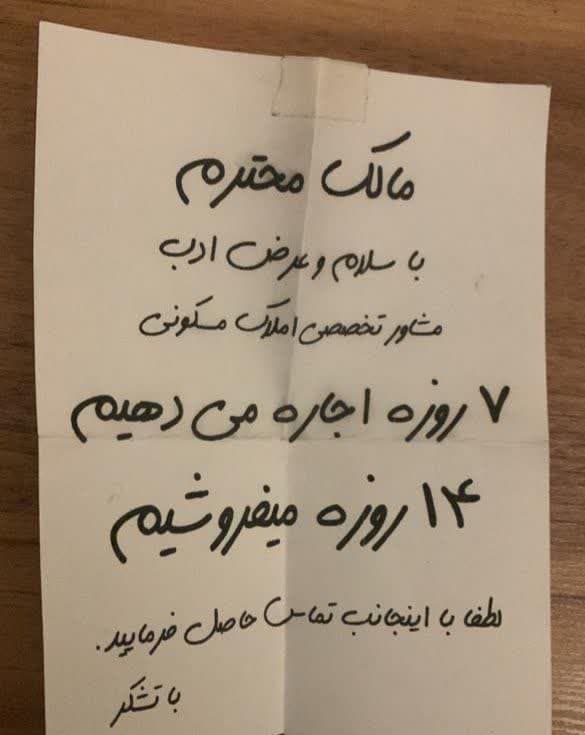 مالک محترم
با سلام و عرض ادب
مشاور تخصصی املاک مسکونی
۷ روزه اجاره می دهیم
۱۴ روزه میفروشیم
لطفا با اینجانب تماس حاصل فرمایید.
با تشکر